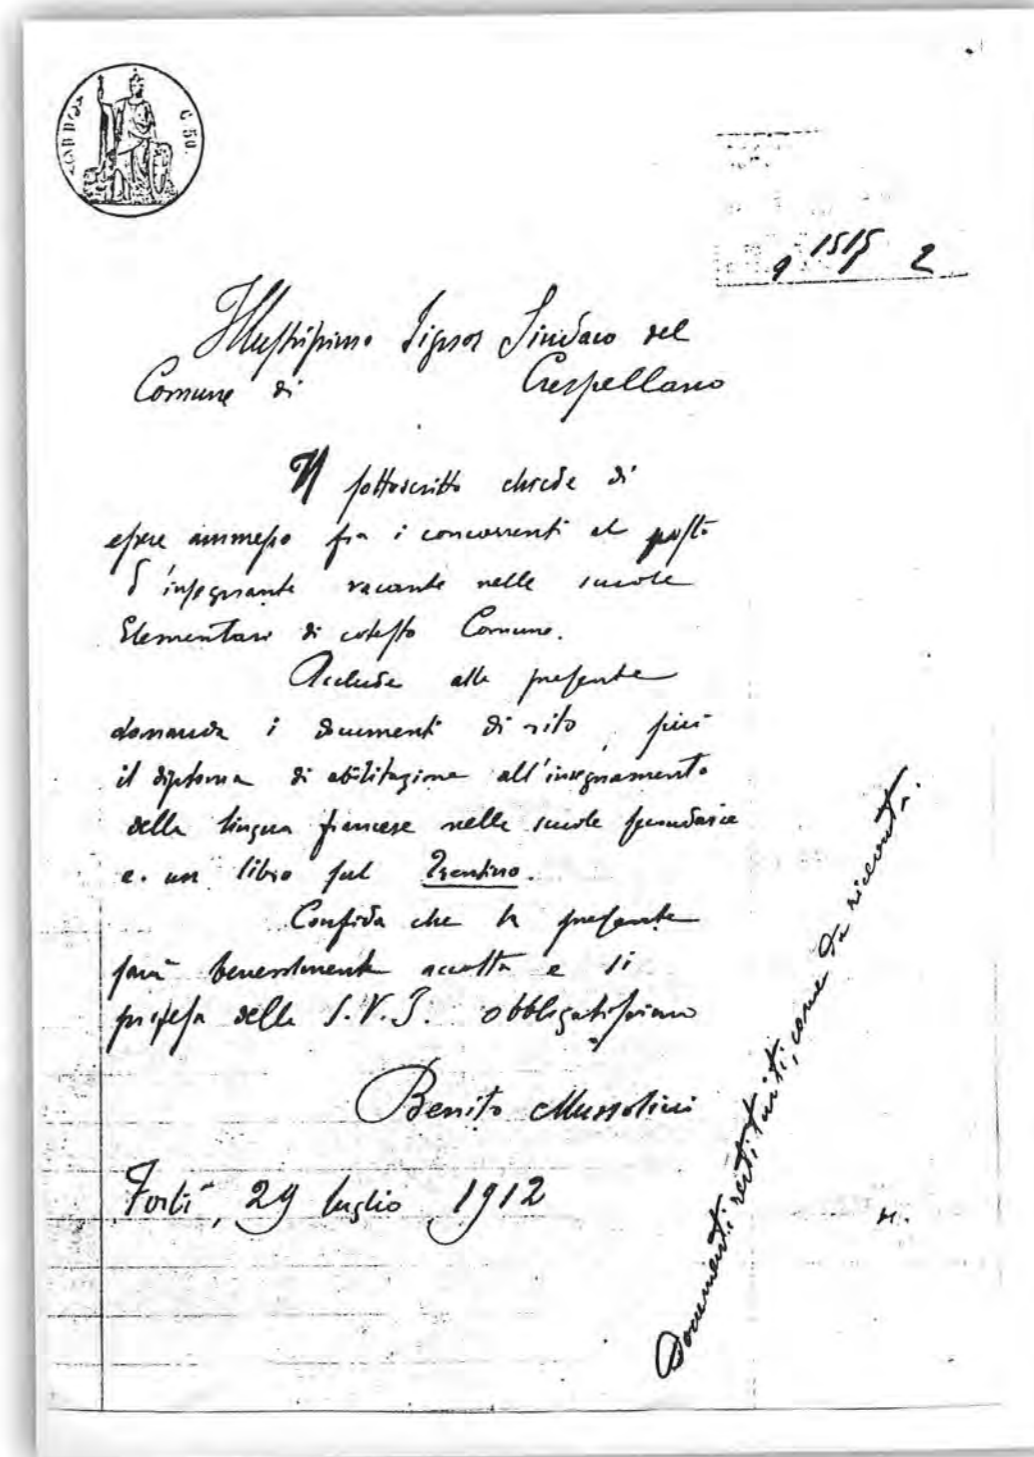 C. 50.
1515
9 2
Illustrissimo Signor Sindaco del
Comune di Crespellano
Il sottoscritto chiede di
essere ammesso fra i concorrenti al posto
d'insegnante vacante nelle scuole
Elementari di codesto Comune.
Acclude alla presente
domanda i documenti di rito, più
il diploma di abilitazione all'insegnamento
della lingua francese nelle scuole secondarie
e un libro sul Trentino.
Confida che la presente
sarà benevolmente accolta e si
professa della S.V.I. obbligatissimo
Benito Mussolini
Forlì, 29 luglio 1912
Documenti restituiti, come da ricevuta.